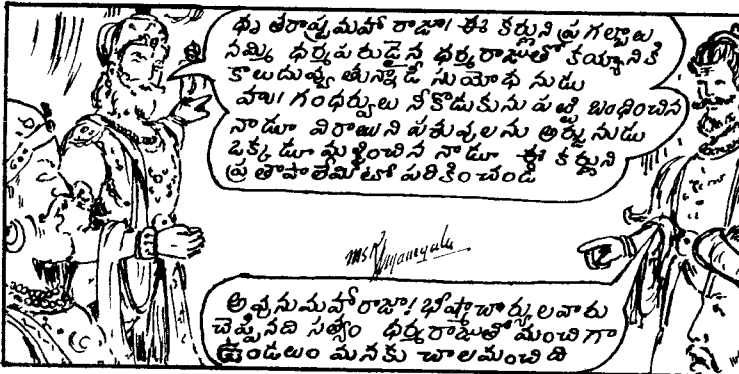 ధృతరాష్ట్రమహారాజా! ఈ కర్ణుని ప్రగల్భాలు
నమ్మి ధర్మపరుడైన ధర్మరాజుతో కయ్యానికి
కాలుదువ్వుతున్నాడే సుయోధనుడు
హు! గంధర్వులు నీకొడుకును పట్టి బంధించిన
నాడూ విరాటుని పశువులను అర్జునుడు
ఒక్కడూ మళ్లించిన నాడూ ఈ కర్ణుని
ప్రతాపాలేమిటో పరికించండి
అవునుమహారాజా! భీష్మాచార్యులవారు
చెప్పినది సత్యం ధర్మరాజుతో మంచిగా
ఉండటం మనకు చాలమంచిది